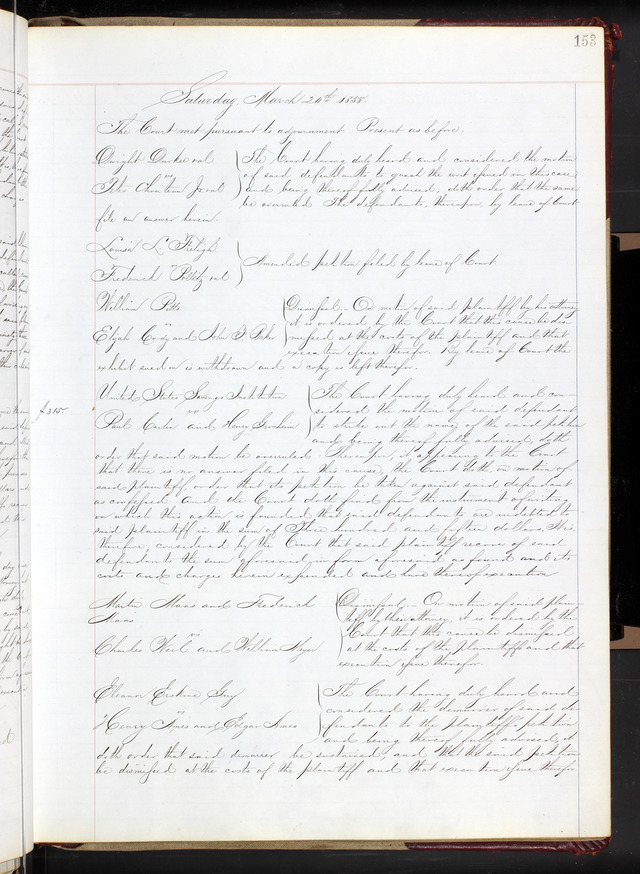 153
Saturday, March 20th 1858.
The Court met pursuant to adjournment Present as before.
Dwight Durkee et al
vs
Peter et al
The Court having duly heard and considered the motion
of said defendants to quash the writ issued in this case
and being thereof fully advised, doth order that the same
be overruled The defendants, thereupon, by leave of Court
file an answer herein.
Louisa L.
vs
Frederick et al
Amended petition filed by leave of Court
William Pitts
vs
Elijah and John F. Parker
Dismissed. On motion of said plaintiff by his attorney
it is ordered by the Court that this cause be dis-
missed at the costs of the plaintiff and that
execution issue therefor. By leave of Court the
exhibit sued on is withdrawn and a copy is left therefor.
$315.
United States Savings Institution
vs
Paul and Henry
The Court having duly heard and con-
sidered the motion of said defendant
to strike out the names of the said
and being thereof fully advised, doth
order that said motion be overruled. Thereupon, it appearing to the Court
that there is no answer filed in this cause, the Court doth on motion of
said plaintiff order that its petition be taken against said defendant
as confessed and the Court doth find from the instrument of writing
on which this action is founded that said defendants are indebted to
said plaintiff in the sum of Three hundred and fifteen dollars, It is,
therefore, considered by the Court that said plaintiff recover of said
defendants the sum aforesaid in form aforesaid so found and its
costs and charges herein expended and have thereof execution
Martin Maas and Frederick
Maas
vs
Charles Weil and William
Dismissed. On motion of said plain-
tiffs by their attorney, it is ordered by the
Court that this cause be dismissed
at the costs of the plaintiffs and that
execution issue therefor.
Eleanor Erskine Guy
vs
Henry Ames and Edgar Ames
The Court having duly heard and
considered the demurrer of said de-
fendants to the plaintiff's petition
and being thereof fully advised, it
doth order that said demurrer be sustained, and that the said petition
be dismissed at the costs of the plaintiff and that execution issue therefor.